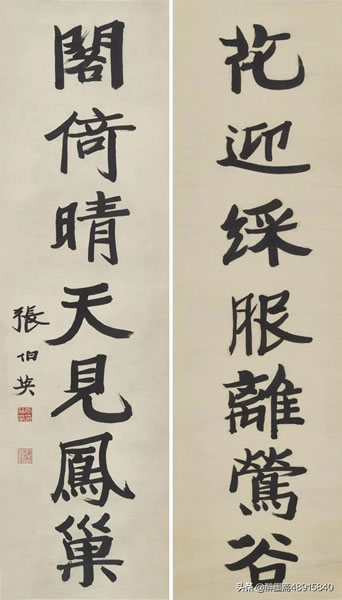 花迎綵服離鶯谷
閣倚晴天見鳳巢
張伯英
头条@醉墨斋48915840